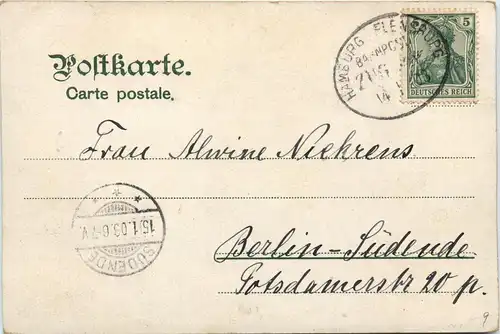 Postkarte.
Carte postale.
HAMBURG FLENSBURG
BAHNPOST
ZUG
14
5
DEUTSCHES REICH
Frau Alwine Niehrens
15/1.03.6-7V.
SÜDENDE
Berlin-Südende
Potsdamerstr 20 p.
9